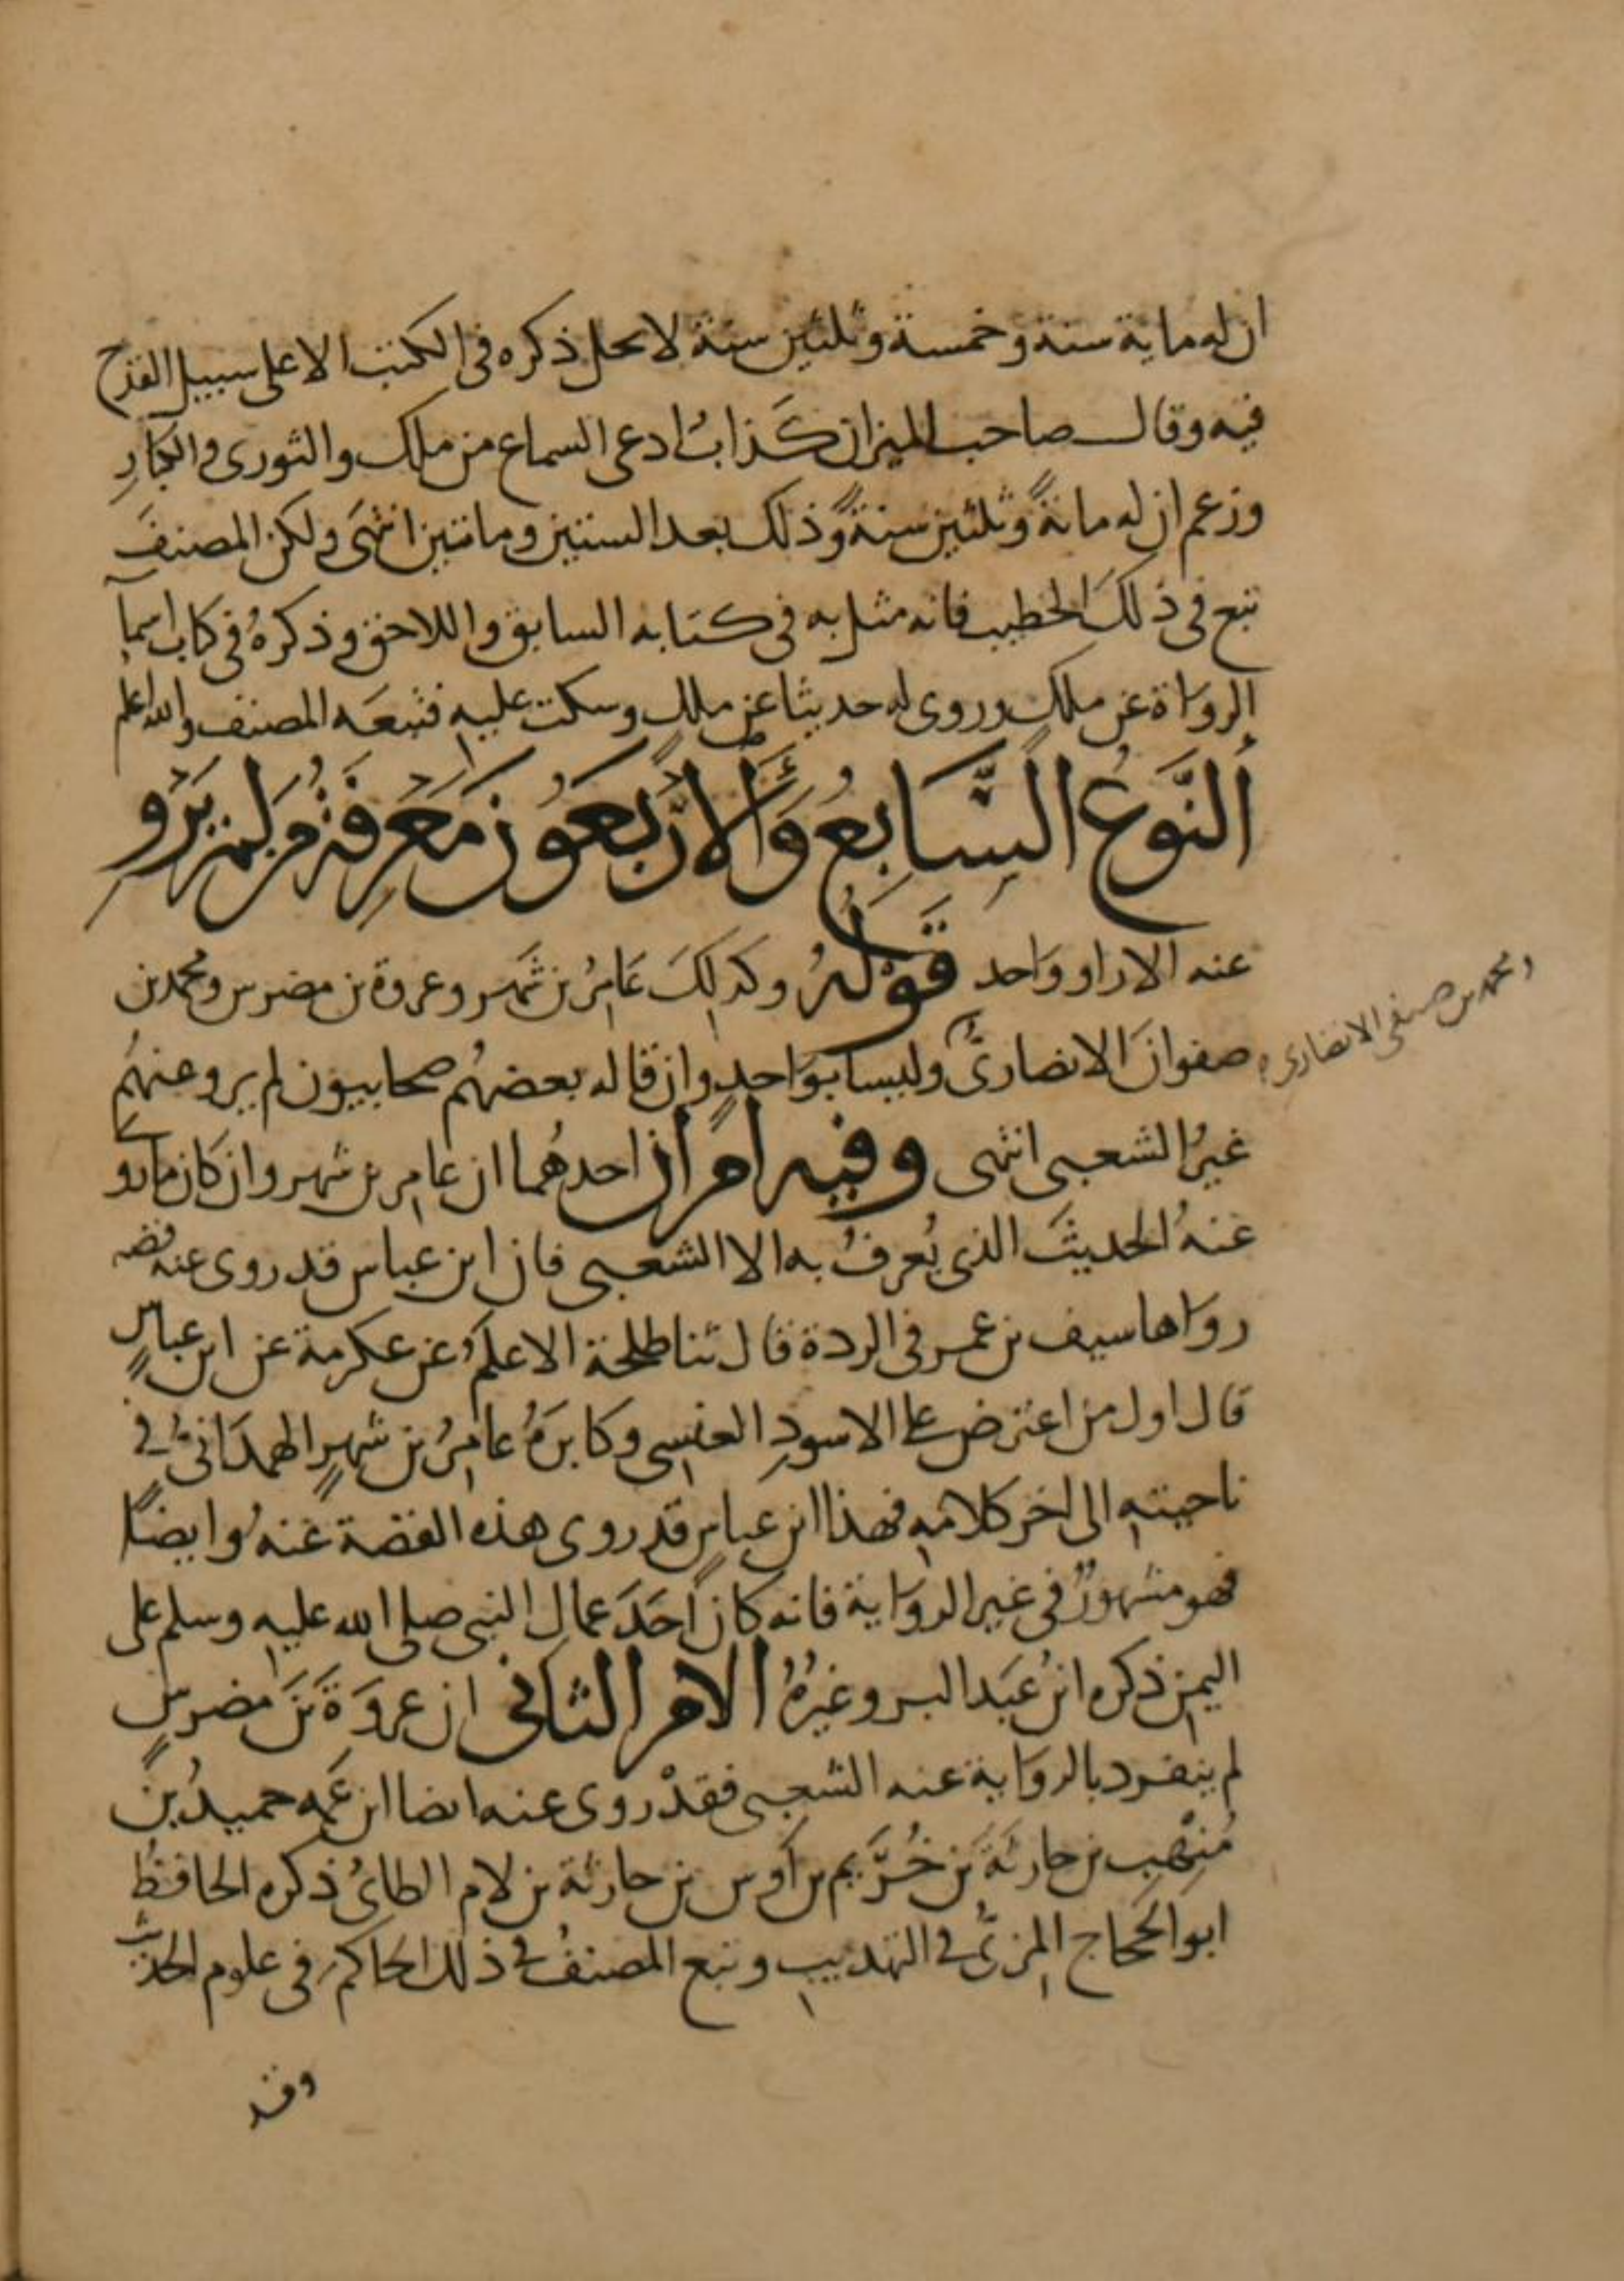 ان له ماية سنة وخمسة وثلثين سنة لا يحل ذكره في الكتب الا على سبيل القدح
فيه وقال صاحب الميزان كذاب ادعى السماع من ملك والثوري والكبار
وزعم ان له مائة وثلثين سنة وذلك بعد الستين ومائتين انتهى ولكن المصنف
تبع في ذلك الخطيب فانه مثل به في كتابه السابق واللاحق وذكره في كتاب اسما
الرواة عن ملك وروى له حديثا عن ملك وسكت عليه فتبعه المصنف والله اعلم
النوع السابع والاربعون معرفة من لم يرو
عنه الا راو واحد قوله وكذلك عامر بن شهر وعروة بن مضرس ومحمد بن
صفوان الانصاري وليسا بواحد وان قاله بعضهم صحابيون لم يرو عنهم
ومحمد بن صيفي الانصاري
غير الشعبي انتهى وفيه امران احدهما ان عامر بن شهر وان كان ما روى
عنه الحديث الذي يعرف به الا الشعبي فان ابن عباس قد روى عنه قصة
رواها سيف بن عمر في الردة قال ثنا طلحة الاعلم عن عكرمة عن ابن عباس
قال اول من اعترض على الاسود العنسي وكابره عامر بن شهر الهمداني في
ناحيته الى اخر كلامه فهذا ابن عباس قد روى هذه القصة عنه وايضا
فهو مشهور في غير الرواية فانه كان احد عمال النبي صلى الله عليه وسلم على
اليمن ذكره ابن عبد البر وغيره الامر الثاني ان عروة بن مضرس
لم ينفرد بالرواية عنه الشعبي فقد روى عنه ايضا ابن عمه حميد بن
منهب بن حارثة بن خريم بن اوس بن حارثة بن لام الطائي ذكره الحافظ
ابو الحجاج المزي في التهذيب وتبع المصنف في ذلك الحاكم في علوم الحديث
وقد